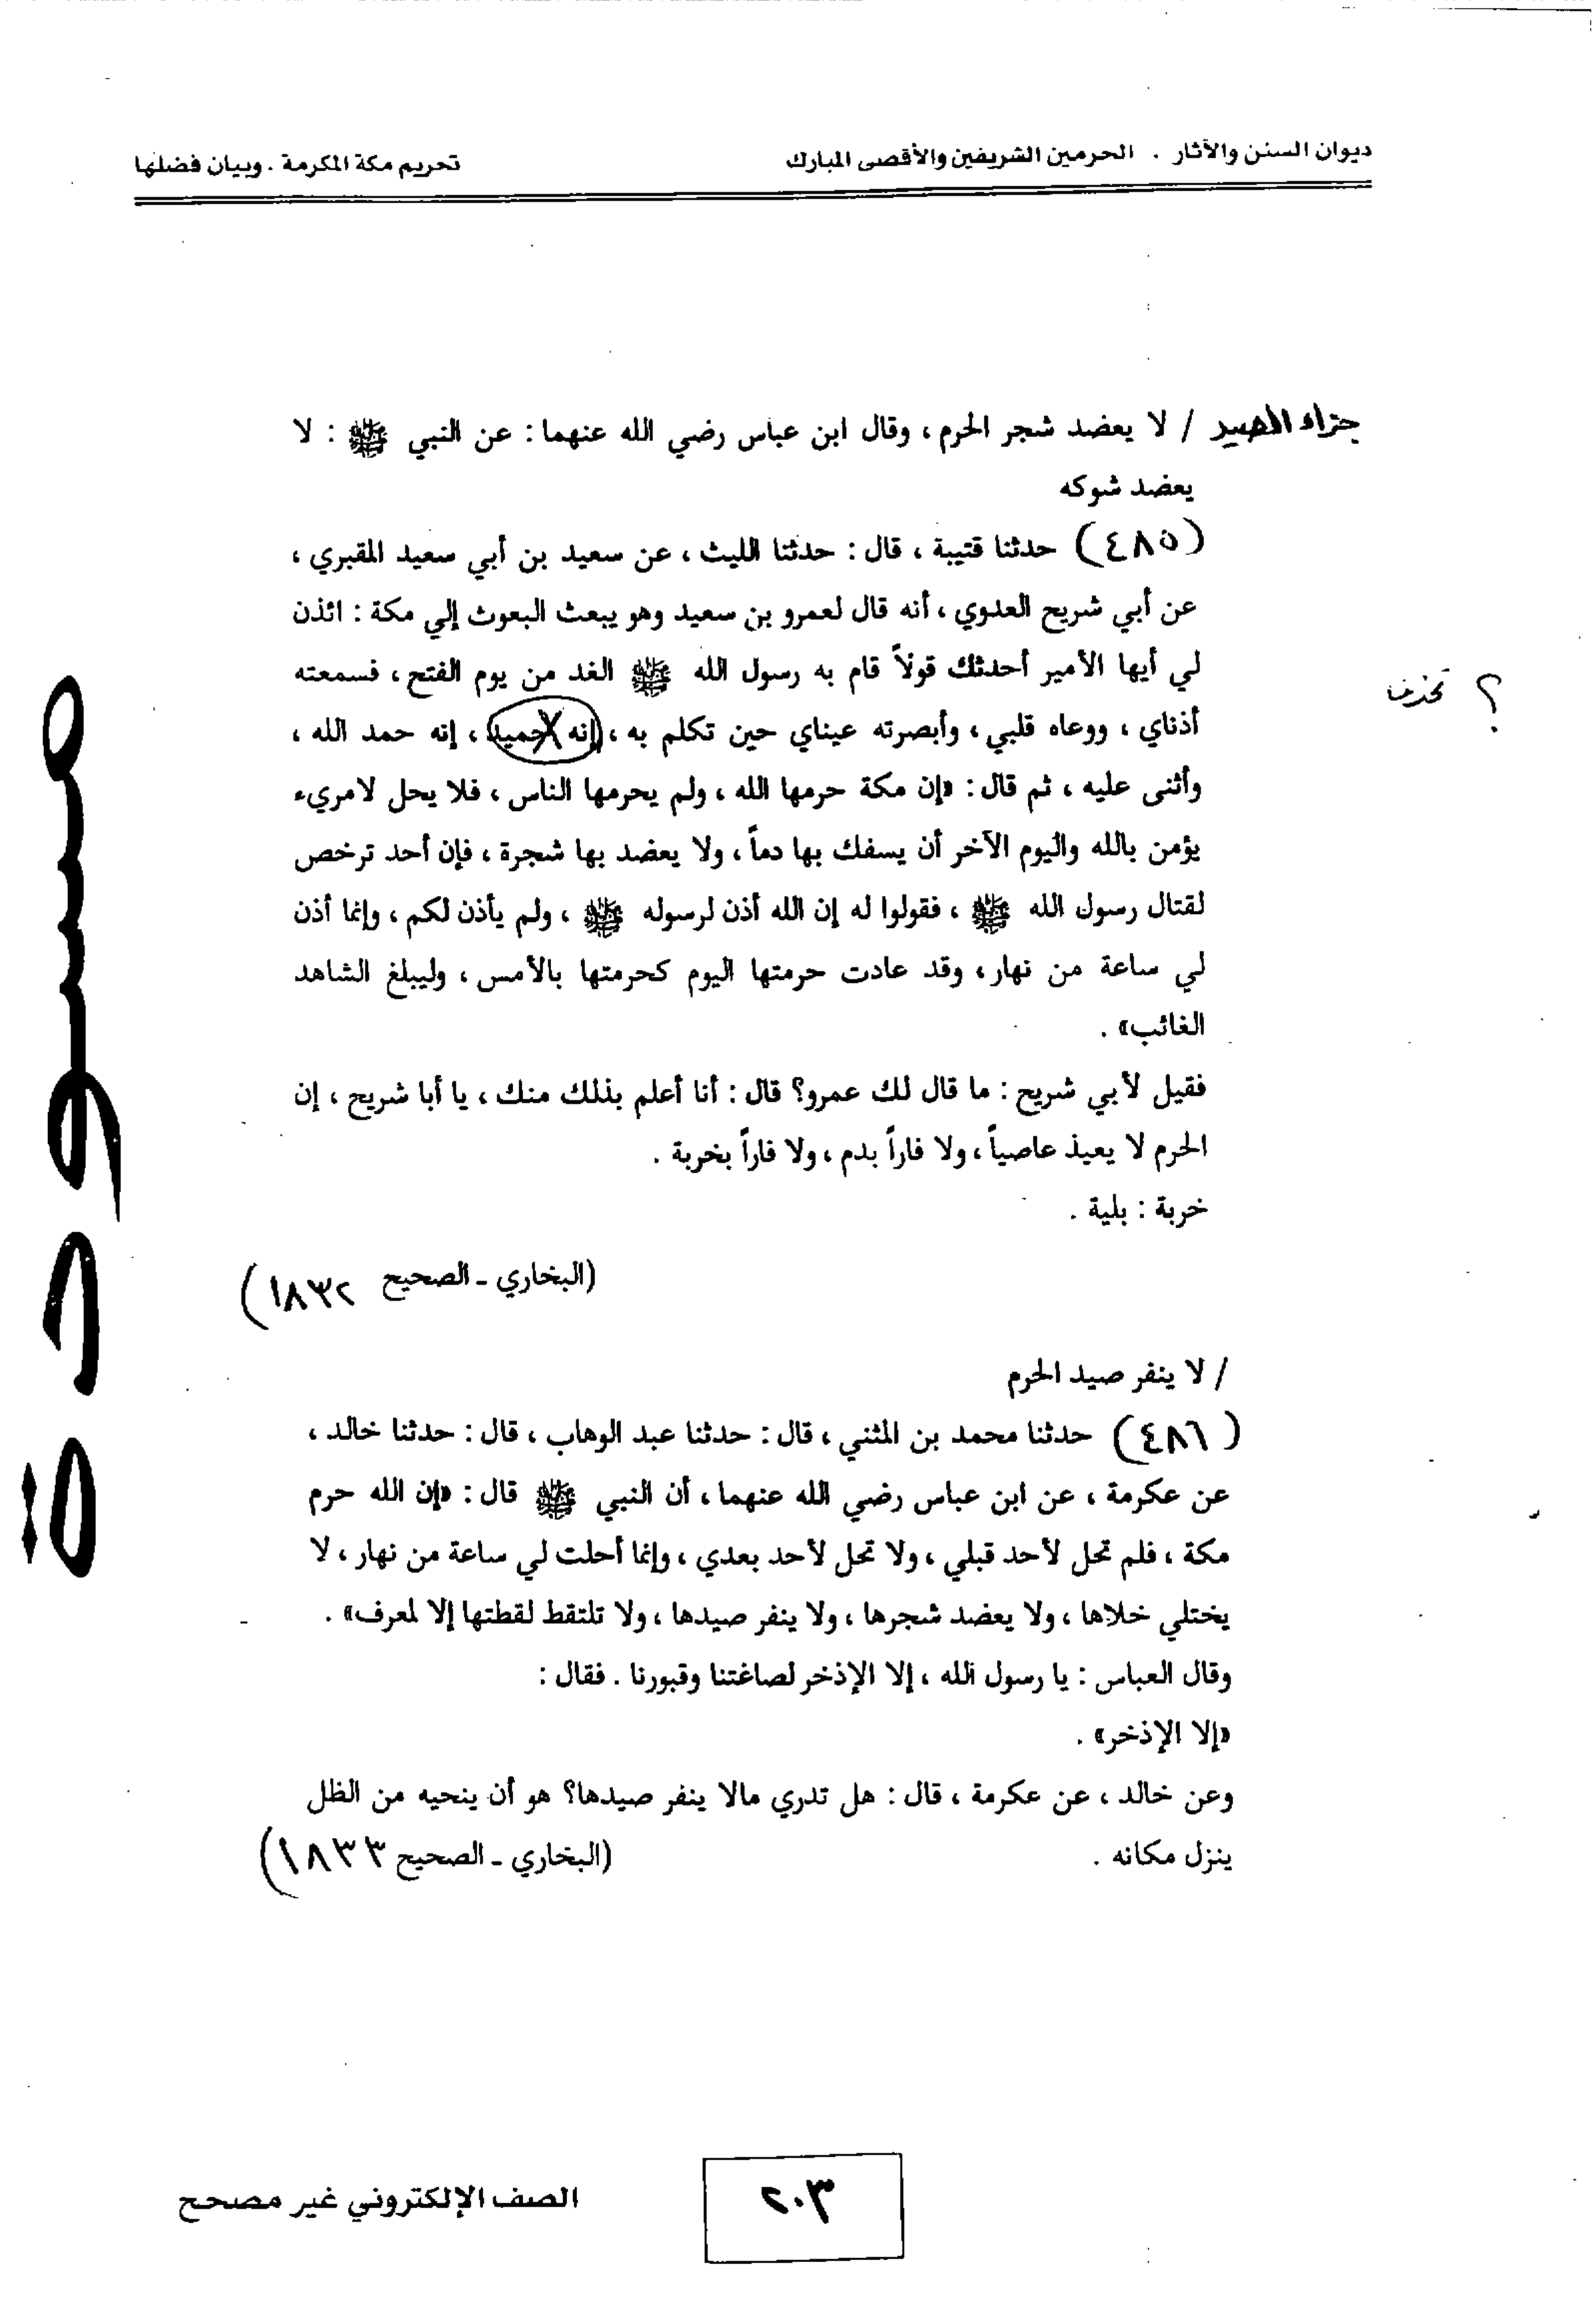 ديوان السنن والآثار . الحرمين الشريفين والأقصى المبارك
تحريم مكة المكرمة . وبيان فضلها
جزاء الصيد / لا يعضد شجر الحرم ، وقال ابن عباس رضي الله عنهما : عن النبي ﷺ : لا
يعضد شوكه
(٤٨٥) حدثنا قتيبة ، قال : حدثنا الليث ، عن سعيد بن أبي سعيد المقبري ،
عن أبي شريح العدوي ، أنه قال لعمرو بن سعيد وهو يبعث البعوث إلي مكة : ائذن
لي أيها الأمير أحدثك قولاً قام به رسول الله ﷺ الغد من يوم الفتح ، فسمعته
؟ تحذف
أذناي ، ووعاه قلبي ، وأبصرته عيناي حين تكلم به ، إنه حميد ، إنه حمد الله ،
وأثنى عليه ، ثم قال : «إن مكة حرمها الله ، ولم يحرمها الناس ، فلا يحل لامريء
يؤمن بالله واليوم الآخر أن يسفك بها دماً ، ولا يعضد بها شجرة ، فإن أحد ترخص
لقتال رسول الله ﷺ ، فقولوا له إن الله أذن لرسوله ﷺ ، ولم يأذن لكم ، وإنما أذن
لي ساعة من نهار ، وقد عادت حرمتها اليوم كحرمتها بالأمس ، وليبلغ الشاهد
الغائب» .
فقيل لأبي شريح : ما قال لك عمرو؟ قال : أنا أعلم بذلك منك ، يا أبا شريح ، إن
الحرم لا يعيذ عاصياً ، ولا فاراً بدم ، ولا فاراً بخربة .
خربة : بلية .
(البخاري ـ الصحيح ١٨٣٢)
/ لا ينفر صيد الحرم
(٤٨٦) حدثنا محمد بن المثني ، قال : حدثنا عبد الوهاب ، قال : حدثنا خالد ،
عن عكرمة ، عن ابن عباس رضي الله عنهما ، أن النبي ﷺ قال : «إن الله حرم
مكة ، فلم تحل لأحد قبلي ، ولا تحل لأحد بعدي ، وإنما أحلت لي ساعة من نهار ، لا
يختلي خلاها ، ولا يعضد شجرها ، ولا ينفر صيدها ، ولا تلتقط لقطتها إلا لمعرف» .
وقال العباس : يا رسول الله ، إلا الإذخر لصاغتنا وقبورنا . فقال :
«إلا الإذخر» .
وعن خالد ، عن عكرمة ، قال : هل تدري مالا ينفر صيدها؟ هو أن ينحيه من الظل
ينزل مكانه .
(البخاري ـ الصحيح ١٨٣٣)
مسودة
٢٠٣
الصف الإلكتروني غير مصحح